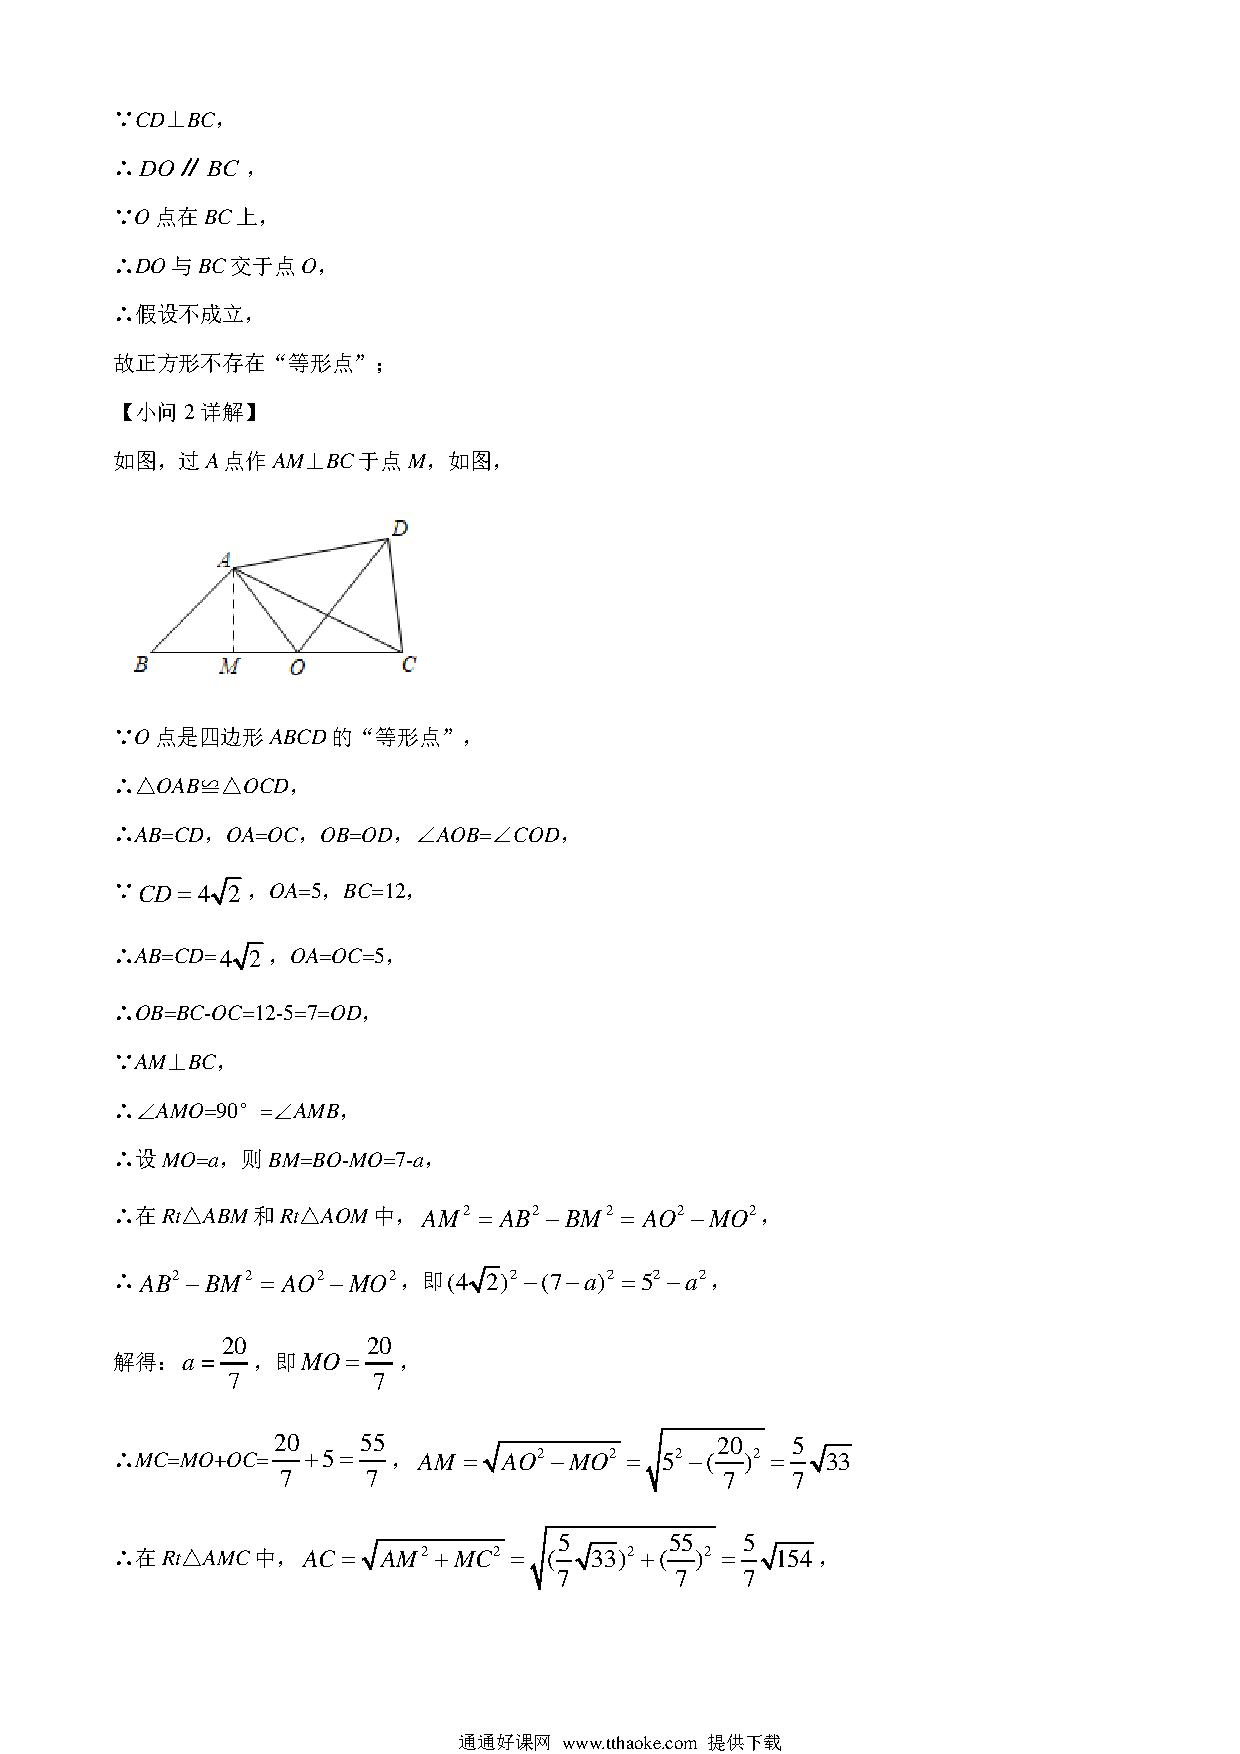 ∵CD⊥BC，
∴DO∥BC，
∵O 点在 BC 上，
∴DO 与 BC 交于点 O，
∴假设不成立，
故正方形不存在“等形点”；
【小问 2 详解】
如图，过 A 点作 AM⊥BC 于点 M，如图，
D
A
B M O C
∵O 点是四边形 ABCD 的“等形点”，
∴△OAB≌△OCD，
∴AB=CD，OA=OC，OB=OD，∠AOB=∠COD，
∵CD=4√2，OA=5，BC=12，
∴AB=CD=4√2，OA=OC=5，
∴OB=BC-OC=12-5=7=OD，
∵AM⊥BC，
∴∠AMO=90°=∠AMB，
∴设 MO=a，则 BM=BO-MO=7-a，
∴在 Rt△ABM 和 Rt△AOM 中，AM²=AB²−BM²=AO²−MO²，
∴AB²−BM²=AO²−MO²，即(4√2)²−(7−a)²=5²−a²，
解得：a=20/7，即MO=20/7，
∴MC=MO+OC=20/7+5=55/7，AM=√(AO²−MO²)=√(5²−(20/7)²)=5/7√33
∴在 Rt△AMC 中，AC=√(AM²+MC²)=√((5/7√33)²+(55/7)²)=5/7√154，
通通好课网 www.tthaoke.com 提供下载